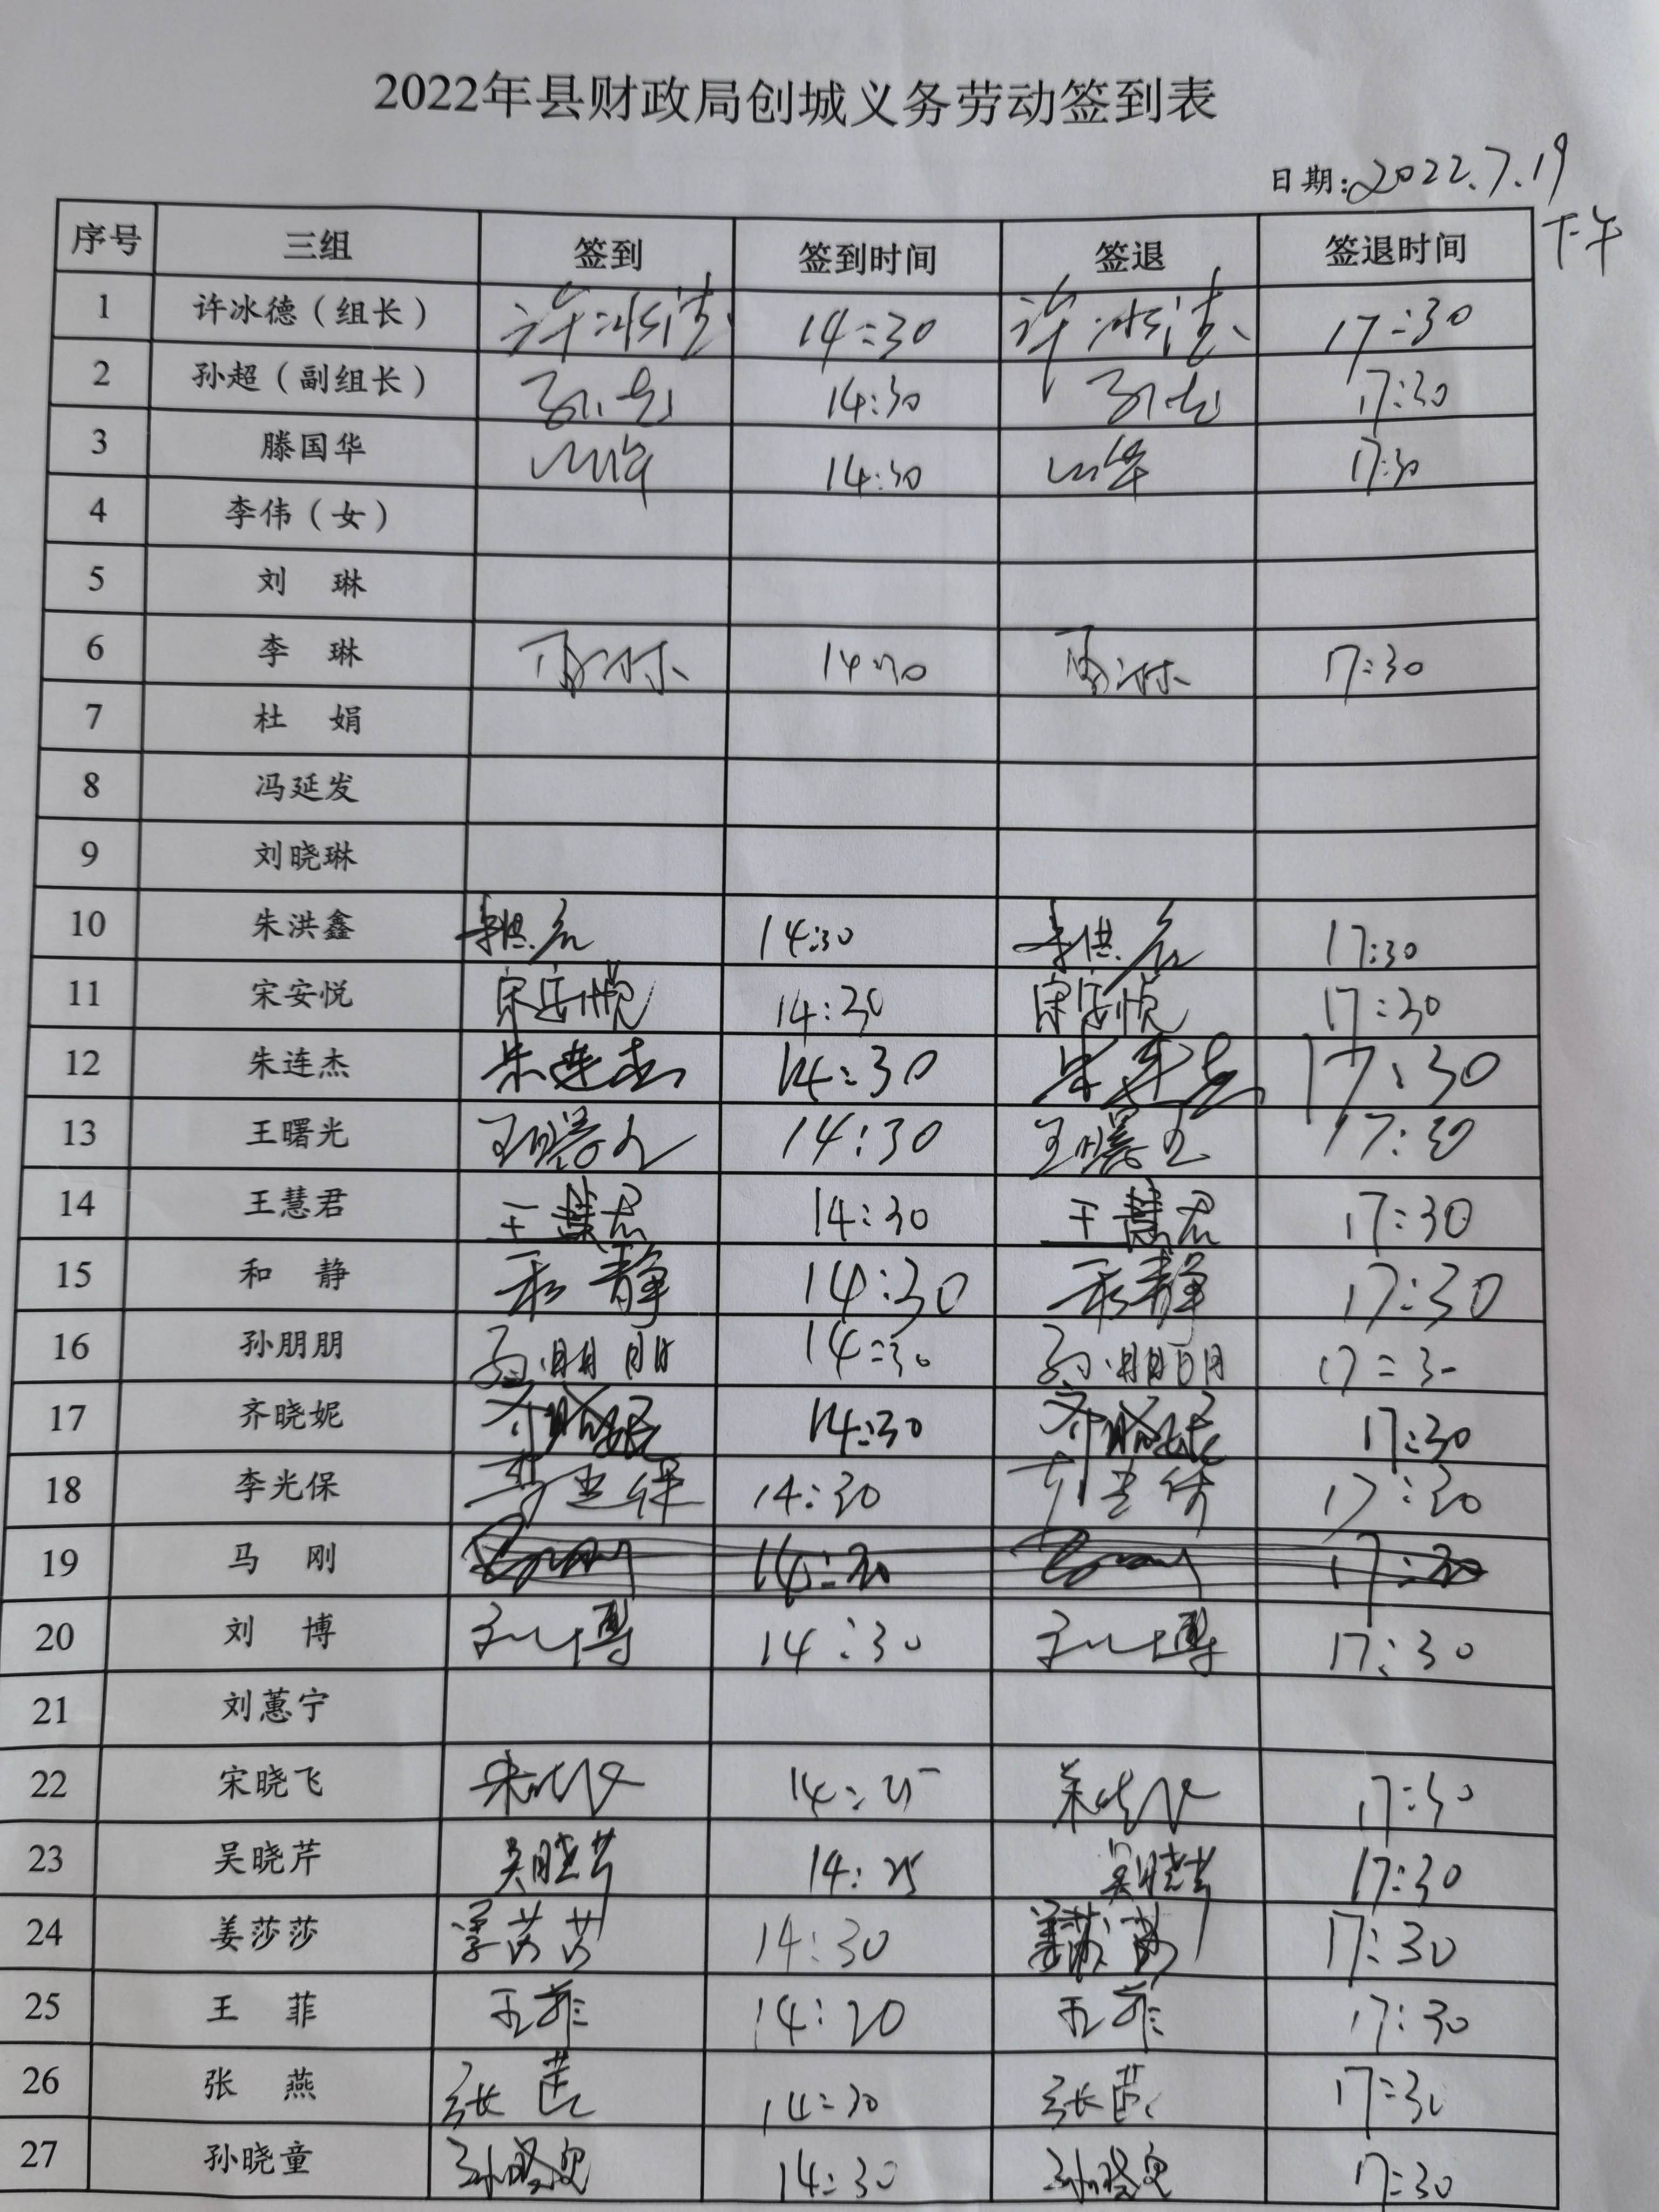 2022年县财政局创城义务劳动签到表
日期:2022.7.19
下午
序号 三组 签到 签到时间 签退 签退时间
1 许冰德（组长） 许冰德 14:30 许冰德 17:30
2 孙超（副组长） 孙超 14:30 孙超 17:30
3 滕国华 14:30 17:30
4 李伟（女）
5 刘 琳
6 李 琳 17:30
7 杜 娟
8 冯延发
9 刘晓琳
10 朱洪鑫 14:30 17:30
11 宋安悦 宋安悦 14:30 宋安悦 17:30
12 朱连杰 朱连杰 14:30 朱连杰 17:30
13 王曙光 王曙光 14:30 王曙光 17:30
14 王慧君 王慧君 14:30 王慧君 17:30
15 和 静 和静 14:30 和静 17:30
16 孙朋朋 孙朋朋 14:30 孙朋朋 17:30
17 齐晓妮 齐晓妮 14:30 齐晓妮 17:30
18 李光保 李光保 14:30 李光保 17:30
19 马 刚
20 刘 博 刘博 14:30 刘博 17:30
21 刘蕙宁
22 宋晓飞 宋晓飞 14:25 宋晓飞 17:30
23 吴晓芹 吴晓芹 14:25 吴晓芹 17:30
24 姜莎莎 姜莎莎 14:30 姜莎莎 17:30
25 王 菲 王菲 14:20 王菲 17:30
26 张 燕 张燕 14:30 张燕 17:30
27 孙晓童 孙晓童 14:30 孙晓童 17:30